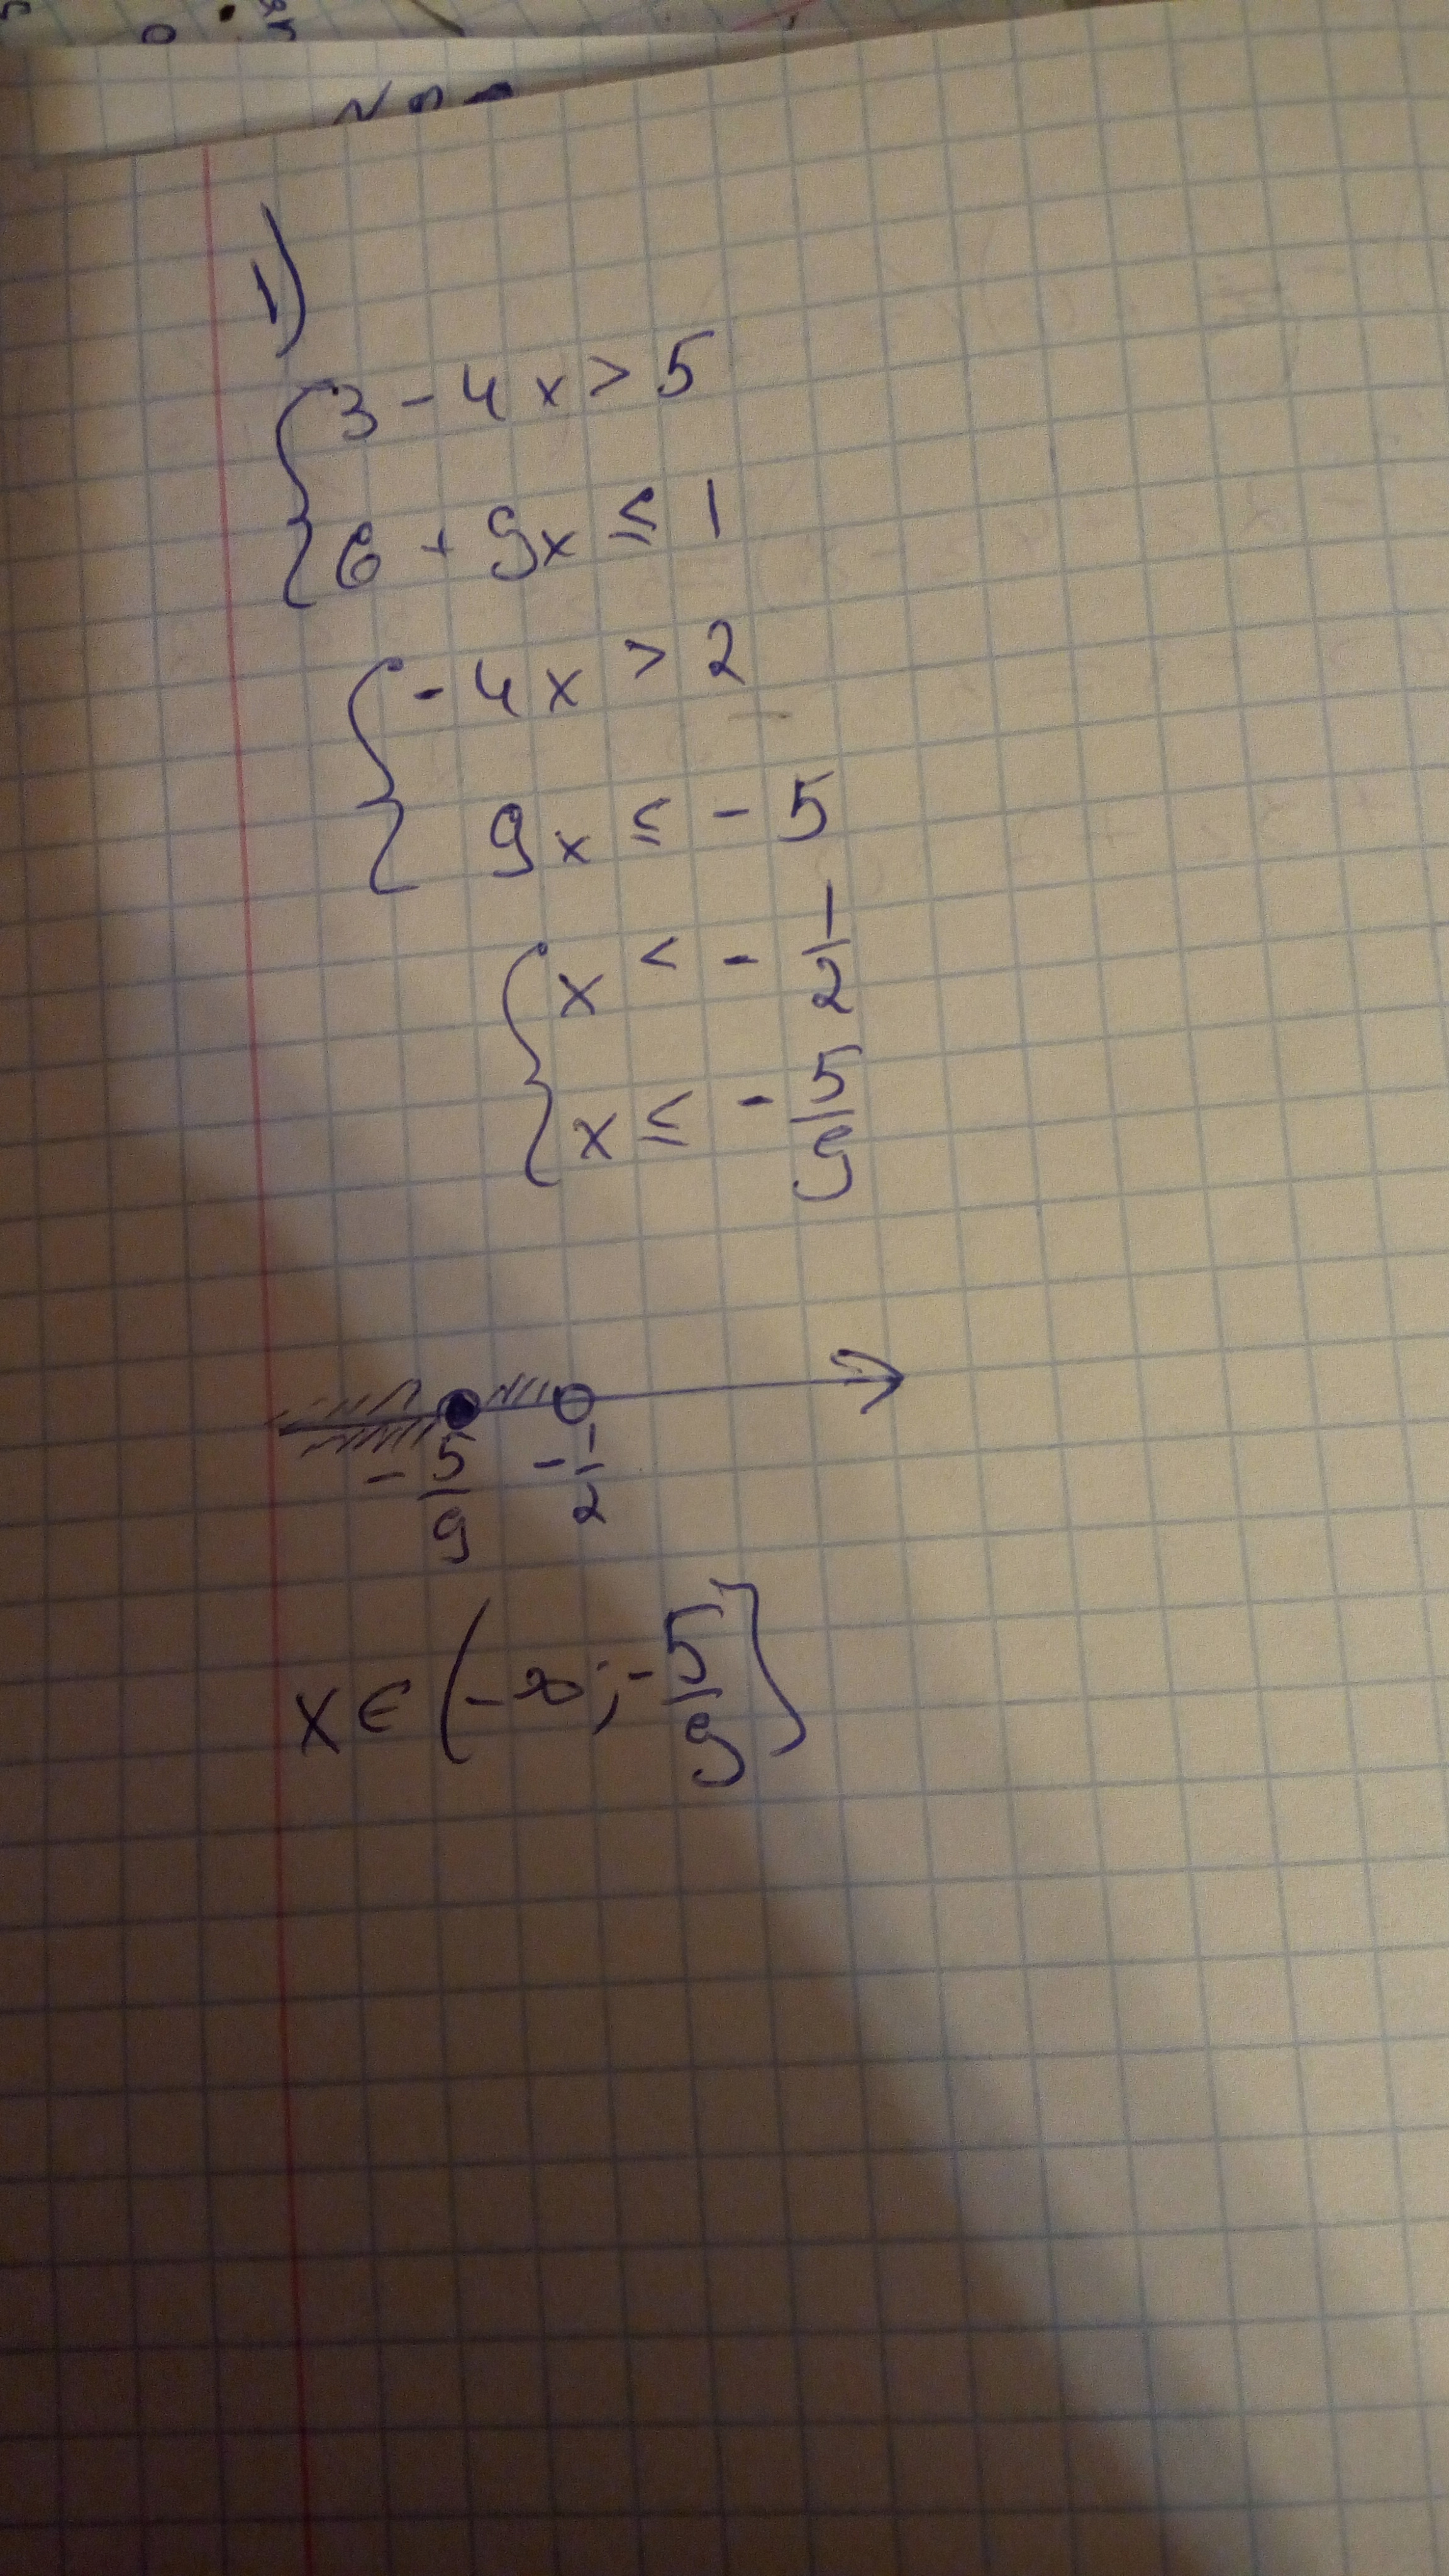 1)
3 - 4x > 5
6 + 9x ≤ 1
- 4x > 2
9x ≤ - 5
x < - 1/2
x ≤ - 5/9
- 5/9 - 1/2
x ∈ (-∞; - 5/9]